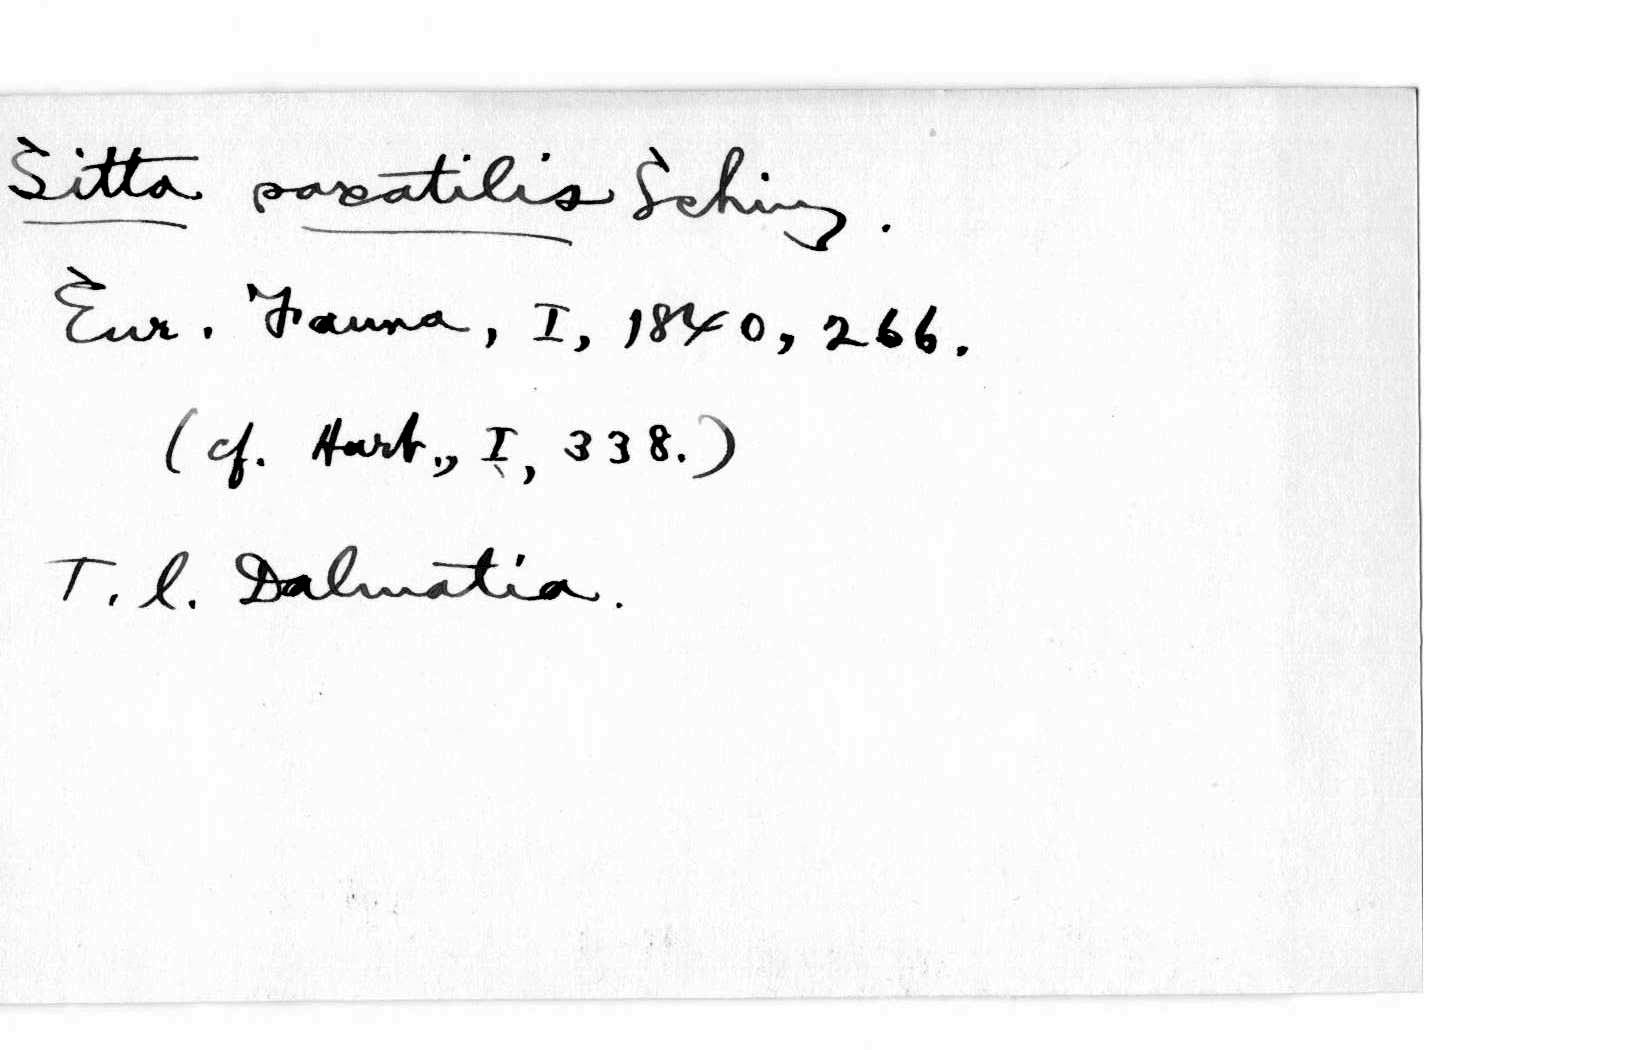 Sitta saxatilis Schinz.
Eur. Fauna, I, 1840, 266.
(cf. Hart., I, 338.)
T. l. Dalmatia.